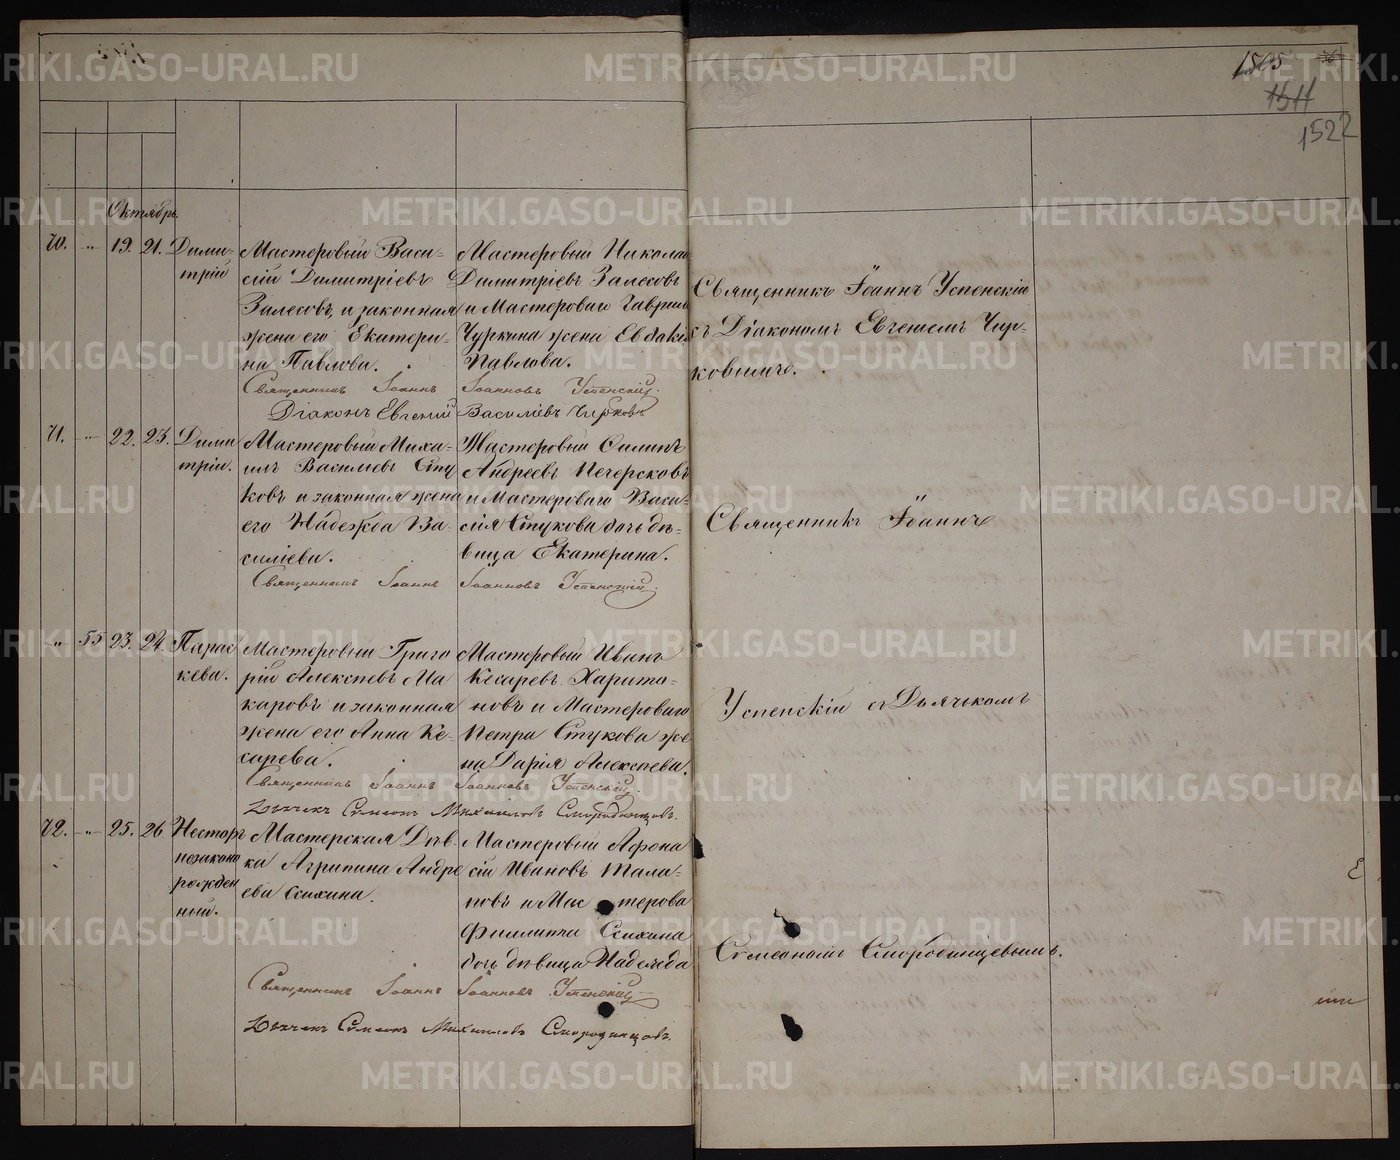 1505
1511
1522
Октябрь.
70. „ 19. 21. Дими-
трій
Мастеровый Васи-
лій Димитріевъ
Залесовъ, и законная
жена его Екатери-
на Павлова.
Мастеровый Никола
Димитріевъ Залесовъ
и Мастероваго Гаврил
Чуркина жена Евдокія
Павлова.
Священникъ Іоаннъ Успенскій
съ Діакономъ Евгеніемъ Чир-
ковымъ.
Священникъ Іоаннъ Іоанновъ Успенскій.
Діаконъ Евгеній Василіевъ Чирковъ
71. „ 22. 23. Дими
трій.
Мастеровый Миха-
илъ Василіевъ Сту
ковъ и законная жена
его Надежда Ва-
силіева.
Мастеровый Филипъ
Андреевъ Печерсковъ
и Мастероваго Васи-
лія Стукова дочь дѣ-
вица Екатерина.
Священникъ Іоаннъ
Священникъ Іоаннъ Іоанновъ Успенскій.
„ 55 23. 24. Парас
кева.
Мастеровый Григо
рій Алексѣевъ Ма
каровъ и законная
жена его Анна Ке-
сарева.
Мастеровый Иванъ
Кесаревъ Харито-
новъ и Мастероваго
Петра Стукова же
на Дарія Алексѣева.
Успенскій съ Дьячкомъ
Священникъ Іоаннъ Іоанновъ Успенскій.
Дьячекъ Симеонъ Михаиловъ Смородинцовъ.
72. „ 25. 26 Несторъ
незаконо
рожден
ный.
Мастерская Дѣв
ка Агрипина Андре
ева
Мастеровый Афона
сій Ивановъ Тала-
новъ и Мастерова
Филиппа
дочь дѣвица Надежда
Симеономъ Смородинцевымъ.
Священникъ Іоаннъ Іоанновъ Успенскій
Дьячекъ Симеонъ Михаиловъ Смородинцовъ.
METRIKI.GASO-URAL.RU